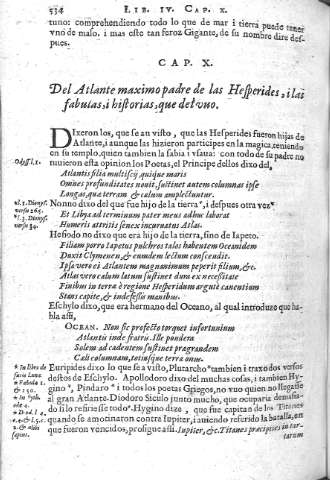 534 LIB. IV. CAP. X.
tuno: comprehendiendo todo lo que de mar i tierra puede tener
vno de maso. i mas este tan feroz Gigante, de su nombre dire des-
pues.
CAP. X.
Del Atlante maximo padre de las Hesperides, i las
fabulas, i historias, que del vuo.
DIxeron los, que se an visto, que las Hesperides fueron hijas de
Atlante, i aunque las hizieron participes en la magica, teniendo
en su templo, quien tambien la sabia i vsaua: con todo de su padre no
Odyss. l. 1. tuuieron esta opinion los Poetas, el Principe dellos dixo del,
Atlantis filia multiscij, quique maris
Omnes profunditates nouit, sustinet autem columnas ipse
Longas, quæ terram & cœlum amplectuntur.
Nonno dixo del que fue hijo de la tierra, i despues otra vez
Et Libya ad terminum pater meus adhuc laborat
Humeris attritis senex incuruatus Atlas.
Hesiodo no dixo que era hijo de la tierra, sino de Iapeto.
Filiam porro Iapetus pulchros talos habentem Oceanidem
Duxit Clymenen, & eundem lectum conscendit.
Ipsa vero ei Atlantem magnanimum peperit filium, &c.
Atlas vero cœlum latum sustinet dura ex necessitate
Finibus in terræ è regione Hesperidum argutè canentium
Stans capite, & indefessis manibus.
Eschylo dixo, que era hermano del Oceano, al qual introduze que ha-
bla assi,
OCEAN. Non sic profecto torquet infortunium
Atlantis inde fratris. Ille pondera
Solem ad cadentem sustinet prægrandem
Cœli columnam, totiusque terræ onus.
Euripides dixo lo que se a visto, Plutarcho tambien i traxo dos versos
destos de Eschylo. Apollodoro dixo del muchas cosas, i tambien Hy-
gino, Pindaro i todos los poetas Griegos, no vuo quien no llegasse
al gran Atlante. Diodoro Siculo junto mucho, que ocuparia demasia-
do si lo refiriesse todo. Hygino dize, que fue capitan de los Titanes
quando se amotinaron contra Iupiter, i auiendo referido la batalla, en
que fueron vencidos, prosigue assi. Iupiter, &c. Titanes præcipites in tar-
tarum